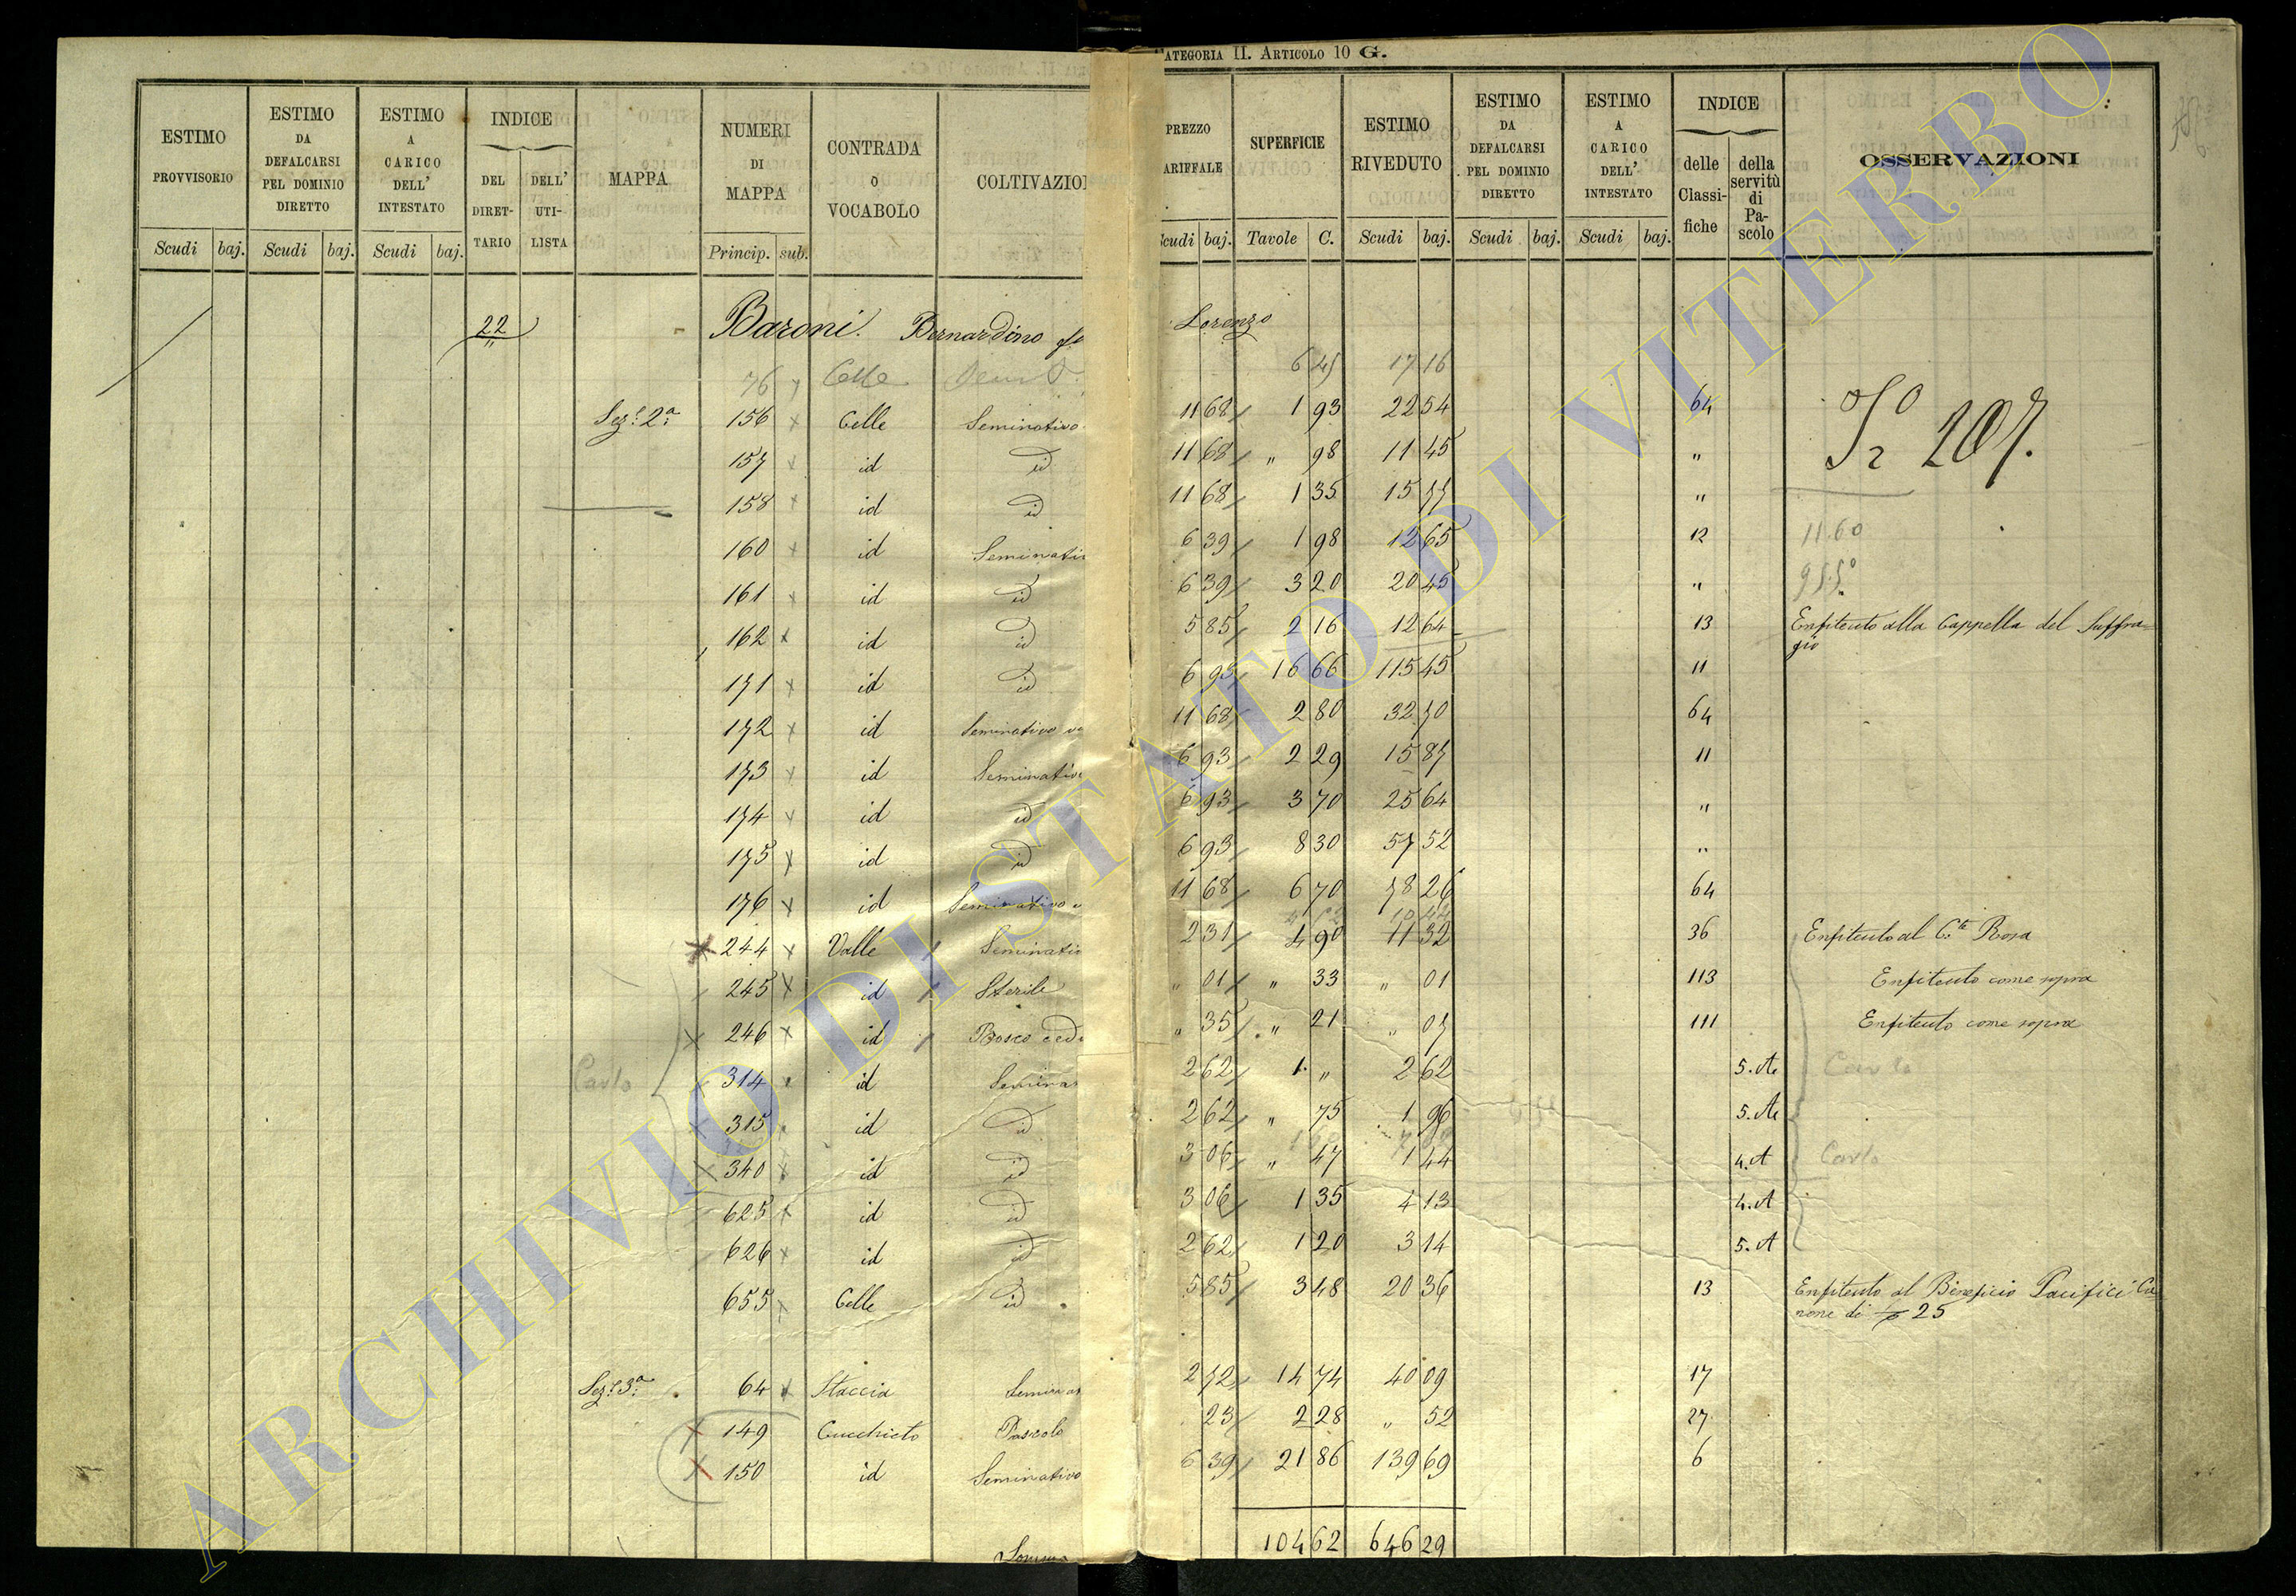 CATEGORIA II. ARTICOLO 10 G.
ESTIMO PROVVISORIO | ESTIMO DA DEFALCARSI PEL DOMINIO DIRETTO | ESTIMO A CARICO DELL' INTESTATO | INDICE DEL DIRET-TARIO | DELL' UTI-LISTA | MAPPA | NUMERI DI MAPPA | CONTRADA O VOCABOLO | COLTIVAZIO | PREZZO ARIFFALE | SUPERFICIE | ESTIMO RIVEDUTO | ESTIMO DA DEFALCARSI PEL DOMINIO DIRETTO | ESTIMO A CARICO DELL' INTESTATO | INDICE delle Classi-fiche | della servitù di Pa-scolo | OSSERVAZIONI
Scudi baj. Scudi baj. Scudi baj. Princip. sub. Scudi baj. Tavole C. Scudi baj. Scudi baj. Scudi baj.
22 Baroni Bernardino Lorenzo
76 Celle 17 16
Sez.e 2a 156 Celle Seminativo 11 68 1 93 22 54 64 207.
157 id id 11 68 " 98 11 45 "
158 id id 11 68 1 35 15 77 "
160 id Seminativ 6 39 1 98 12 65 12 11.60
161 id id 6 39 3 20 20 45 "
162 id id 5 85 2 16 12 64 13 Enfiteuto alla Cappella del Suffra=
gio
171 id id 6 93 16 66 115 45 11
172 id Seminativo 11 68 2 80 32 70 64
173 id Seminativo 6 93 2 29 15 87 11
174 id id 6 93 3 70 25 64 "
175 id id 6 93 8 30 57 52 "
176 id Seminativo 11 68 6 70 78 26 64
244 Valle Seminativ 2 31 4 90 11 32 36 Enfiteuto al C.te Rosa
245 id Sterile " 01 " 33 " 01 113 Enfiteuto come sopra
246 id Bosco ced " 35 " 21 " 07 111 Enfiteuto come sopra
Carlo 314 id Semina 2 62 1 " 2 62 5.A Carlo
315 id id 2 62 " 75 1 96 5.A
340 id id 3 06 " 47 1 44 4.A Carlo
625 id id 3 06 1 35 4 13 4.A
626 id id 2 62 1 20 3 14 5.A
655 Celle id 5 85 3 48 20 36 13 Enfiteuto al Beneficio Pacifici Ca=
none di 25
Sez.e 3a 64 Staccia Semina 2 72 14 74 40 09 17
149 Cucchieto Pascolo 23 2 28 " 52 27
150 id Seminativo 6 39 21 86 139 69 6
Somma 104 62 646 29
ARCHIVIO DI STATO DI VITERBO